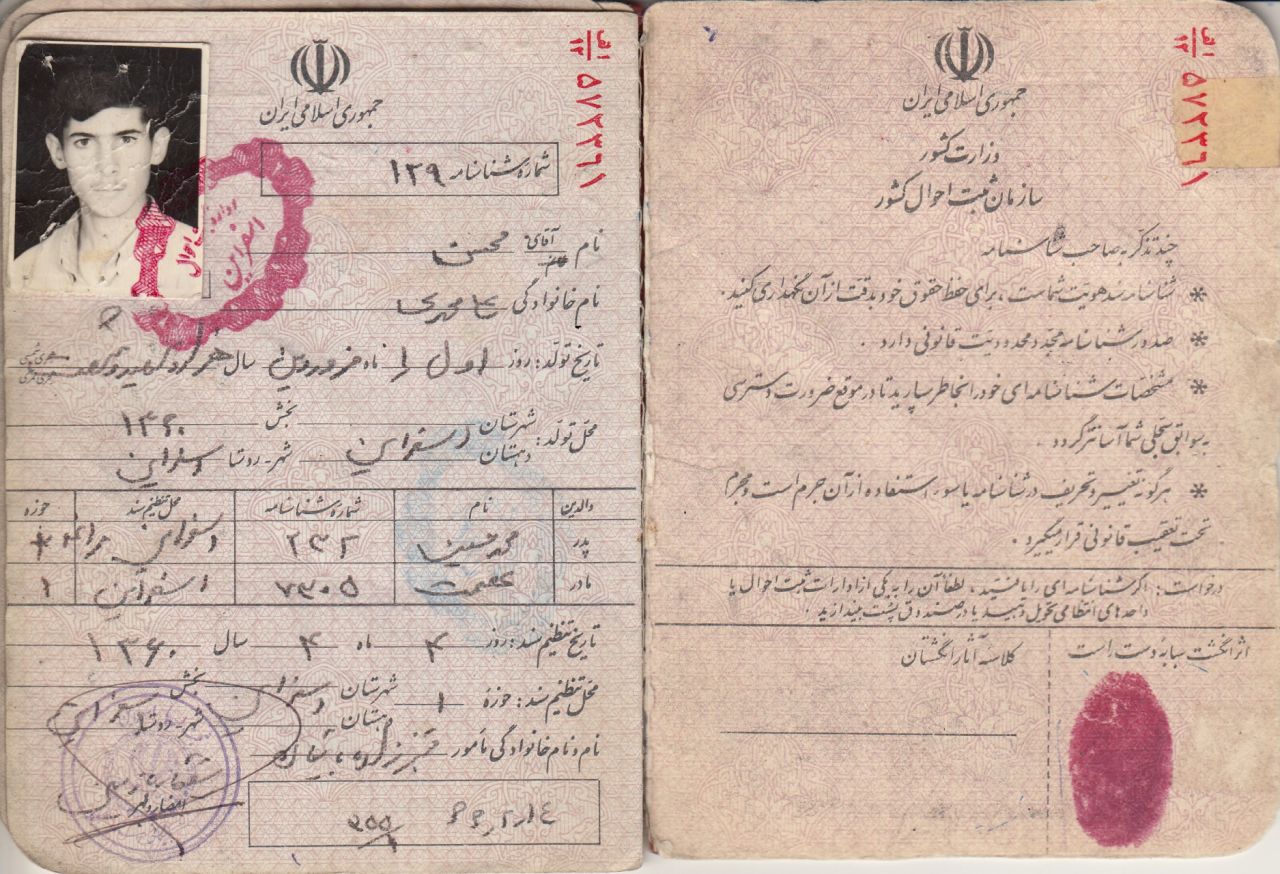 جمهوری اسلامی ایران
الف
۱۲
۵۷۲۳۶۱
شماره شناسنامه ۱۳۹
اسفراین
نام آقای محسن
نام خانوادگی
تاریخ تولد: روز اول ماه فروردین سال هزار و سیصد و شصت
۱۳۶۰
محل تولد: شهرستان دهستان اسفراین بخش شهر - روستا اسفراین
والدین نام شماره شناسنامه محل تنظیم سند حوزه
پدر محمدحسین ۲۳۲ اسفراین
مادر عصمت ۷۳۰۵ اسفراین ۱
تاریخ تنظیم سند: روز ۴ ماه ۴ سال ۱۳۶۰
محل تنظیم سند: حوزه ۱ شهرستان دهستان اسفراین بخش شهر - روستا اسفراین
نام و نام خانوادگی مأمور
امضاء و مهر
جمهوری اسلامی ایران
وزارت کشور
سازمان ثبت احوال کشور
الف
۱۲
۵۷۲۳۶۱
چند تذکر به صاحب شناسنامه
* شناسنامه سند هویت شماست، برای حفظ حقوق خود بدقت از آن نگهداری کنید.
* صدور شناسنامه مجدد محدودیت قانونی دارد.
* مشخصات شناسنامه‌ای خود را بخاطر بسپارید تا در موقع ضرورت دسترسی
به سوابق سجلی شما آسانتر گردد.
* هرگونه تغییر و تحریف در شناسنامه یا سوء استفاده از آن جرم است و مجرم
تحت تعقیب قانونی قرار میگیرد.
درخواست: اگر شناسنامه‌ای را یافتید، لطفاً آن را به یکی از ادارات ثبت احوال یا
واحدهای انتظامی تحویل دهید یا در صندوق پست بیندازید.
اثر انگشت سبابه دست راست
کلاسه آثار انگشتان